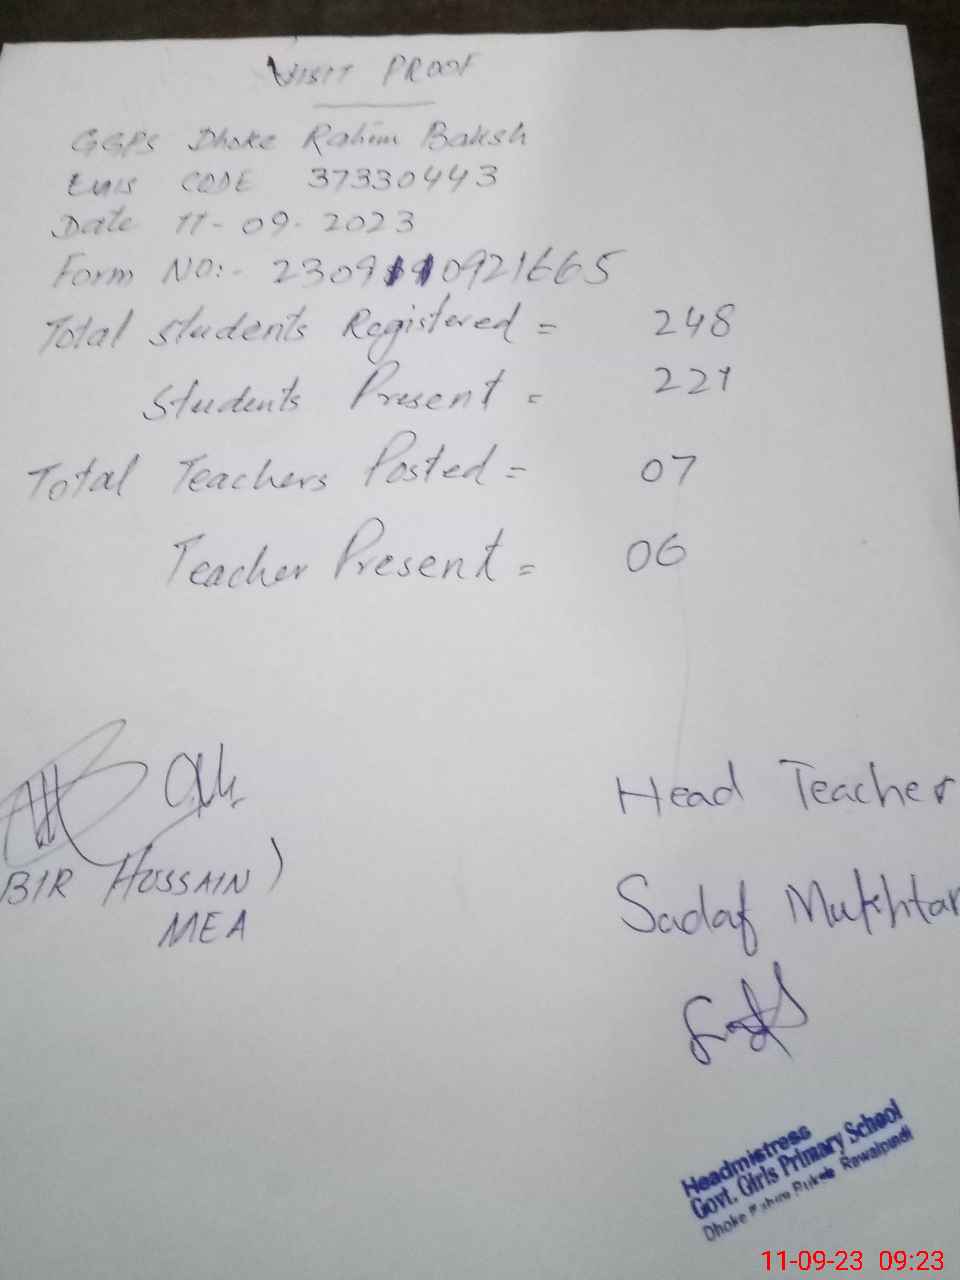 VISIT PROOF
GGPS Dhoke Rahim Baksh
EMIS CODE 37330443
Date 11-09-2023
Form NO:- 2309110921665
Total Students Registered = 248
Students Present = 221
Total Teachers Posted = 07
Teacher Present = 06
BIR HUSSAIN)
MEA
Head Teacher
Sadaf Mukhtar
Headmistress
Govt. Girls Primary School
Dhoke Rawalpindi
11-09-23 09:23